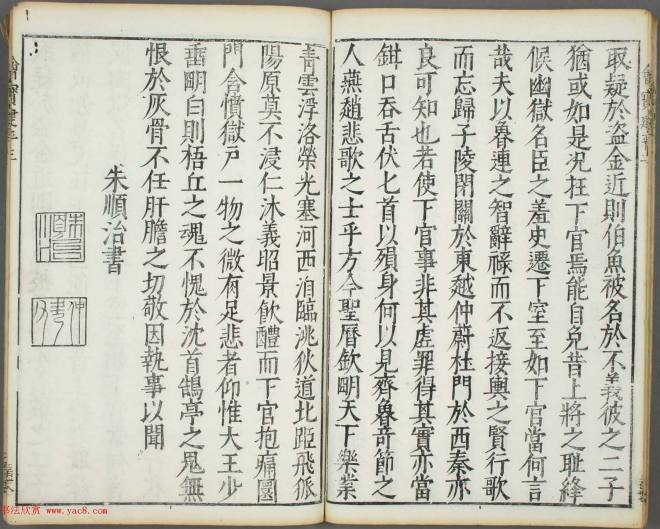 取疑於盗金近則伯魚被名於不義彼之二子
猶或如是況在下官焉能自免昔上將之恥絳
候幽獄名臣之羞史遷下室至如下官當何言
哉夫以魯連之智辭祿而不返接輿之賢行歌
而忘歸子陵閉關於東越仲蔚杜門於西秦亦
良可知也若使下官事非其虛罪得其實亦當
鉗口吞舌伏匕首以殞身何以見齊魯奇節之
人燕趙悲歌之士乎方今聖曆欽明天下樂業
青雲浮洛榮光塞河西洎臨洮狄道北距飛狐
陽原莫不浸仁沐義昭景飲醴而下官抱痛圜
門含憤獄戶一物之微有足悲者仰惟大王少
垂明白則梧丘之魂不愧於沈首鵠亭之鬼無
恨於灰骨不任肝膽之切敬因執事以聞
朱順治書
书法欣赏
www.yac8.com